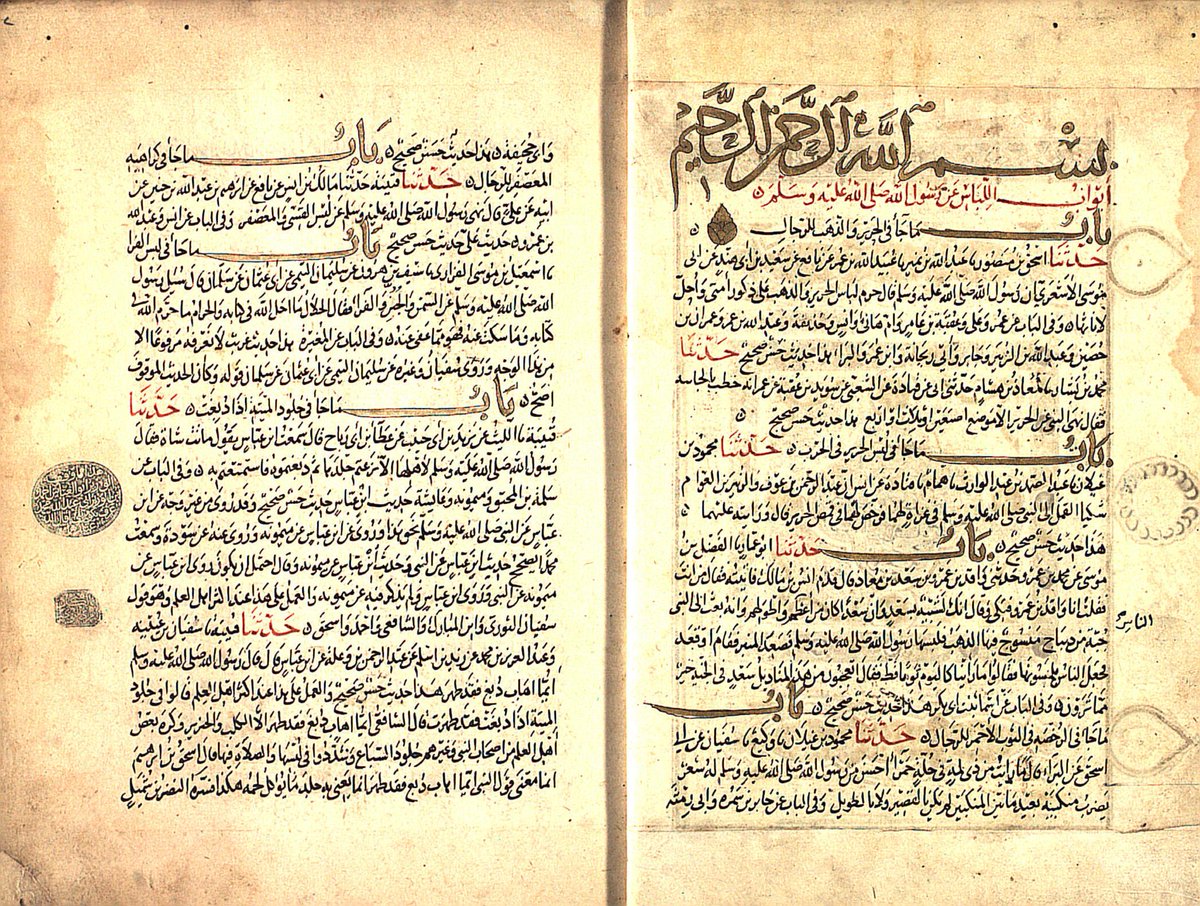 بسم الله الرحمن الرحيم
ابواب اللباس عن رسول الله صلى الله عليه وسلم
باب ما جا في الحرير والذهب للرجال
حدثنا اسحق بن منصور عبد الله بن نمير عبيد الله بن عمر عن نافع عن سعيد بن ابى هند عن ابى
موسى الاشعرى ان رسول الله صلى الله عليه وسلم قال حرم لباس الحرير والذهب على ذكور امتى واحل
لاناثها وفى الباب عن عمر وعلى وعقبة بن عامر وام هانئ وانس وحذيفة وعبد الله بن عمرو وعمران بن
حصين وعبد الله بن الزبير وجابر وابى ريحانة وابن عمر والبراء هذا حديث حسن صحيح حدثنا
محمد بن بشار معاذ بن هشام حدثنى ابى عن قتادة عن الشعبى عن سويد بن غفلة عن عمر انه خطب بالجابيه
فقال نهى النبى عن الحرير الا موضع اصبعين او ثلاث او اربع هذا حديث حسن صحيح
باب ما جا فى لبس الحرير فى الحرب حدثنا محمود بن
غيلان عبد الصمد بن عبد الوارث همام قتادة عن انس ان عبد الرحمن بن عوف والزبير بن العوام
شكيا القمل الى النبى صلى الله عليه وسلم فى غزاة لهما فرخص لهما فى قمص الحرير قال ورايته عليهما
هذا حديث حسن صحيح باب حدثنا ابو عمار الفضل بن
موسى عن محمد بن عمرو حدثنى واقد بن عمرو بن سعد بن معاذ قال قدم انس بن مالك فاتيته فقال من انت
فقلت انا واقد بن عمرو فبكى وقال انك لشبيه بسعد وان سعدا كان من اعظم الناس واطولهم وانه بعث الى النبى
جبة من ديباج منسوج فيها الذهب فلبسها رسول الله صلى الله عليه وسلم فصعد المنبر فقام او قعد
فجعل الناس يلمسونها فقالوا ما راينا كاليوم ثوبا قط فقال اتعجبون من هذه لمناديل سعد فى الجنة خير
مما ترون وفى الباب عن اسما بنت ابى بكر هذا حديث حسن صحيح باب
ما جا فى الرخصة فى الثوب الاحمر للرجال حدثنا محمود بن غيلان وكيع سفيان عن ابى
اسحق عن البراء قال ما رايت من ذى لمة فى حلة حمرا احسن من رسول الله صلى الله عليه وسلم له شعر
يضرب منكبيه بعيد ما بين المنكبين لم يكن بالقصير ولا بالطويل وفى الباب عن جابر بن سمرة وابى رمثة
الناس
وابى جحيفة هذا حديث حسن صحيح باب ما جا فى كراهية
المعصفر للرجال حدثنا قتيبة حدثنا مالك بن انس عن نافع عن ابراهيم بن عبد الله بن حنين عن
ابيه عن على قال نهى رسول الله صلى الله عليه وسلم عن لبس القسى والمعصفر وفى الباب عن انس وعبد الله
بن عمرو حديث على حديث حسن صحيح باب ما جا فى لبس الفرا
اسمعيل بن موسى الفزارى سيف بن هرون عن سليمان التيمى عن ابى عثمان عن سلمان قال سئل رسول
الله صلى الله عليه وسلم عن السمن والجبن والفرا فقال الحلال ما احل الله فى كتابه والحرام ما حرم الله فى
كتابه وما سكت عنه فهو مما عفى عنه وفى الباب عن المغيرة هذا حديث غريب لا نعرفه مرفوعا الا
من هذا الوجه وروى سفيان وغيره عن سليمان التيمى عن ابى عثمان عن سلمان قوله وكان الحديث الموقوف
اصح باب ما جا فى جلود الميتة اذا دبغت حدثنا
قتيبة الليث عن يزيد بن ابى حبيب عن عطا بن ابى رباح قال سمعت ابن عباس يقول ماتت شاة فقال
رسول الله صلى الله عليه وسلم لاهلها الا نزعتم جلدها ثم دبغتموه فاستمتعتم به وفى الباب عن
سلمة بن المحبق وميمونة وعائشة حديث ابن عباس حديث حسن صحيح وقد روى من غير وجه عن ابن
عباس عن النبى صلى الله عليه وسلم نحو هذا وروى عن ابن عباس عن ميمونة وروى عنه عن سودة وسمعت
محمدا يصحح حديث ابن عباس عن النبى وحديث ابن عباس عن ميمونة وقال احتمل ان يكون روى ابن عباس عن
ميمونة عن النبى وروى ابن عباس عن النبى ولم يذكر فيه عن ميمونة والعمل على هذا عند اكثر اهل العلم وهو قول
سفيان الثورى وابن المبارك والشافعى واحمد واسحق حدثنا قتيبة سفيان بن عيينة
وعبد العزيز بن محمد عن زيد بن اسلم عن عبد الرحمن بن وعلة عن ابن عباس قال قال رسول الله صلى الله عليه وسلم
ايما اهاب دبغ فقد طهر هذا حديث حسن صحيح والعمل على هذا عند اكثر اهل العلم قالوا فى جلود
الميتة اذا دبغت فقد طهرت قال الشافعى ايما اهاب دبغ فقد طهر الا الكلب والخنزير وكره بعض
اهل العلم من اصحاب النبى وغيرهم جلود السباع وشددوا فى لبسها والصلاة فيها قال اسحق بن ابراهيم
انما معنى قول النبى ايما اهاب دبغ فقد طهر انما يعنى به جلد ما يؤكل لحمه هكذا فسره النضر بن شميل